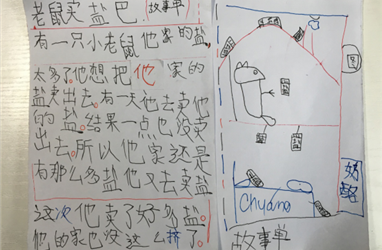 老鼠卖盐巴(故事单
有一只小老鼠他家的盐
太多了他想把他家的
盐卖出去。有一天他去卖他
的盐。结果一点也没卖
出去。所以他家还是
有那么多盐他又去卖盐
这次他卖了好多盐。
他的家也没这么挤了。
图
Chuang
故事单